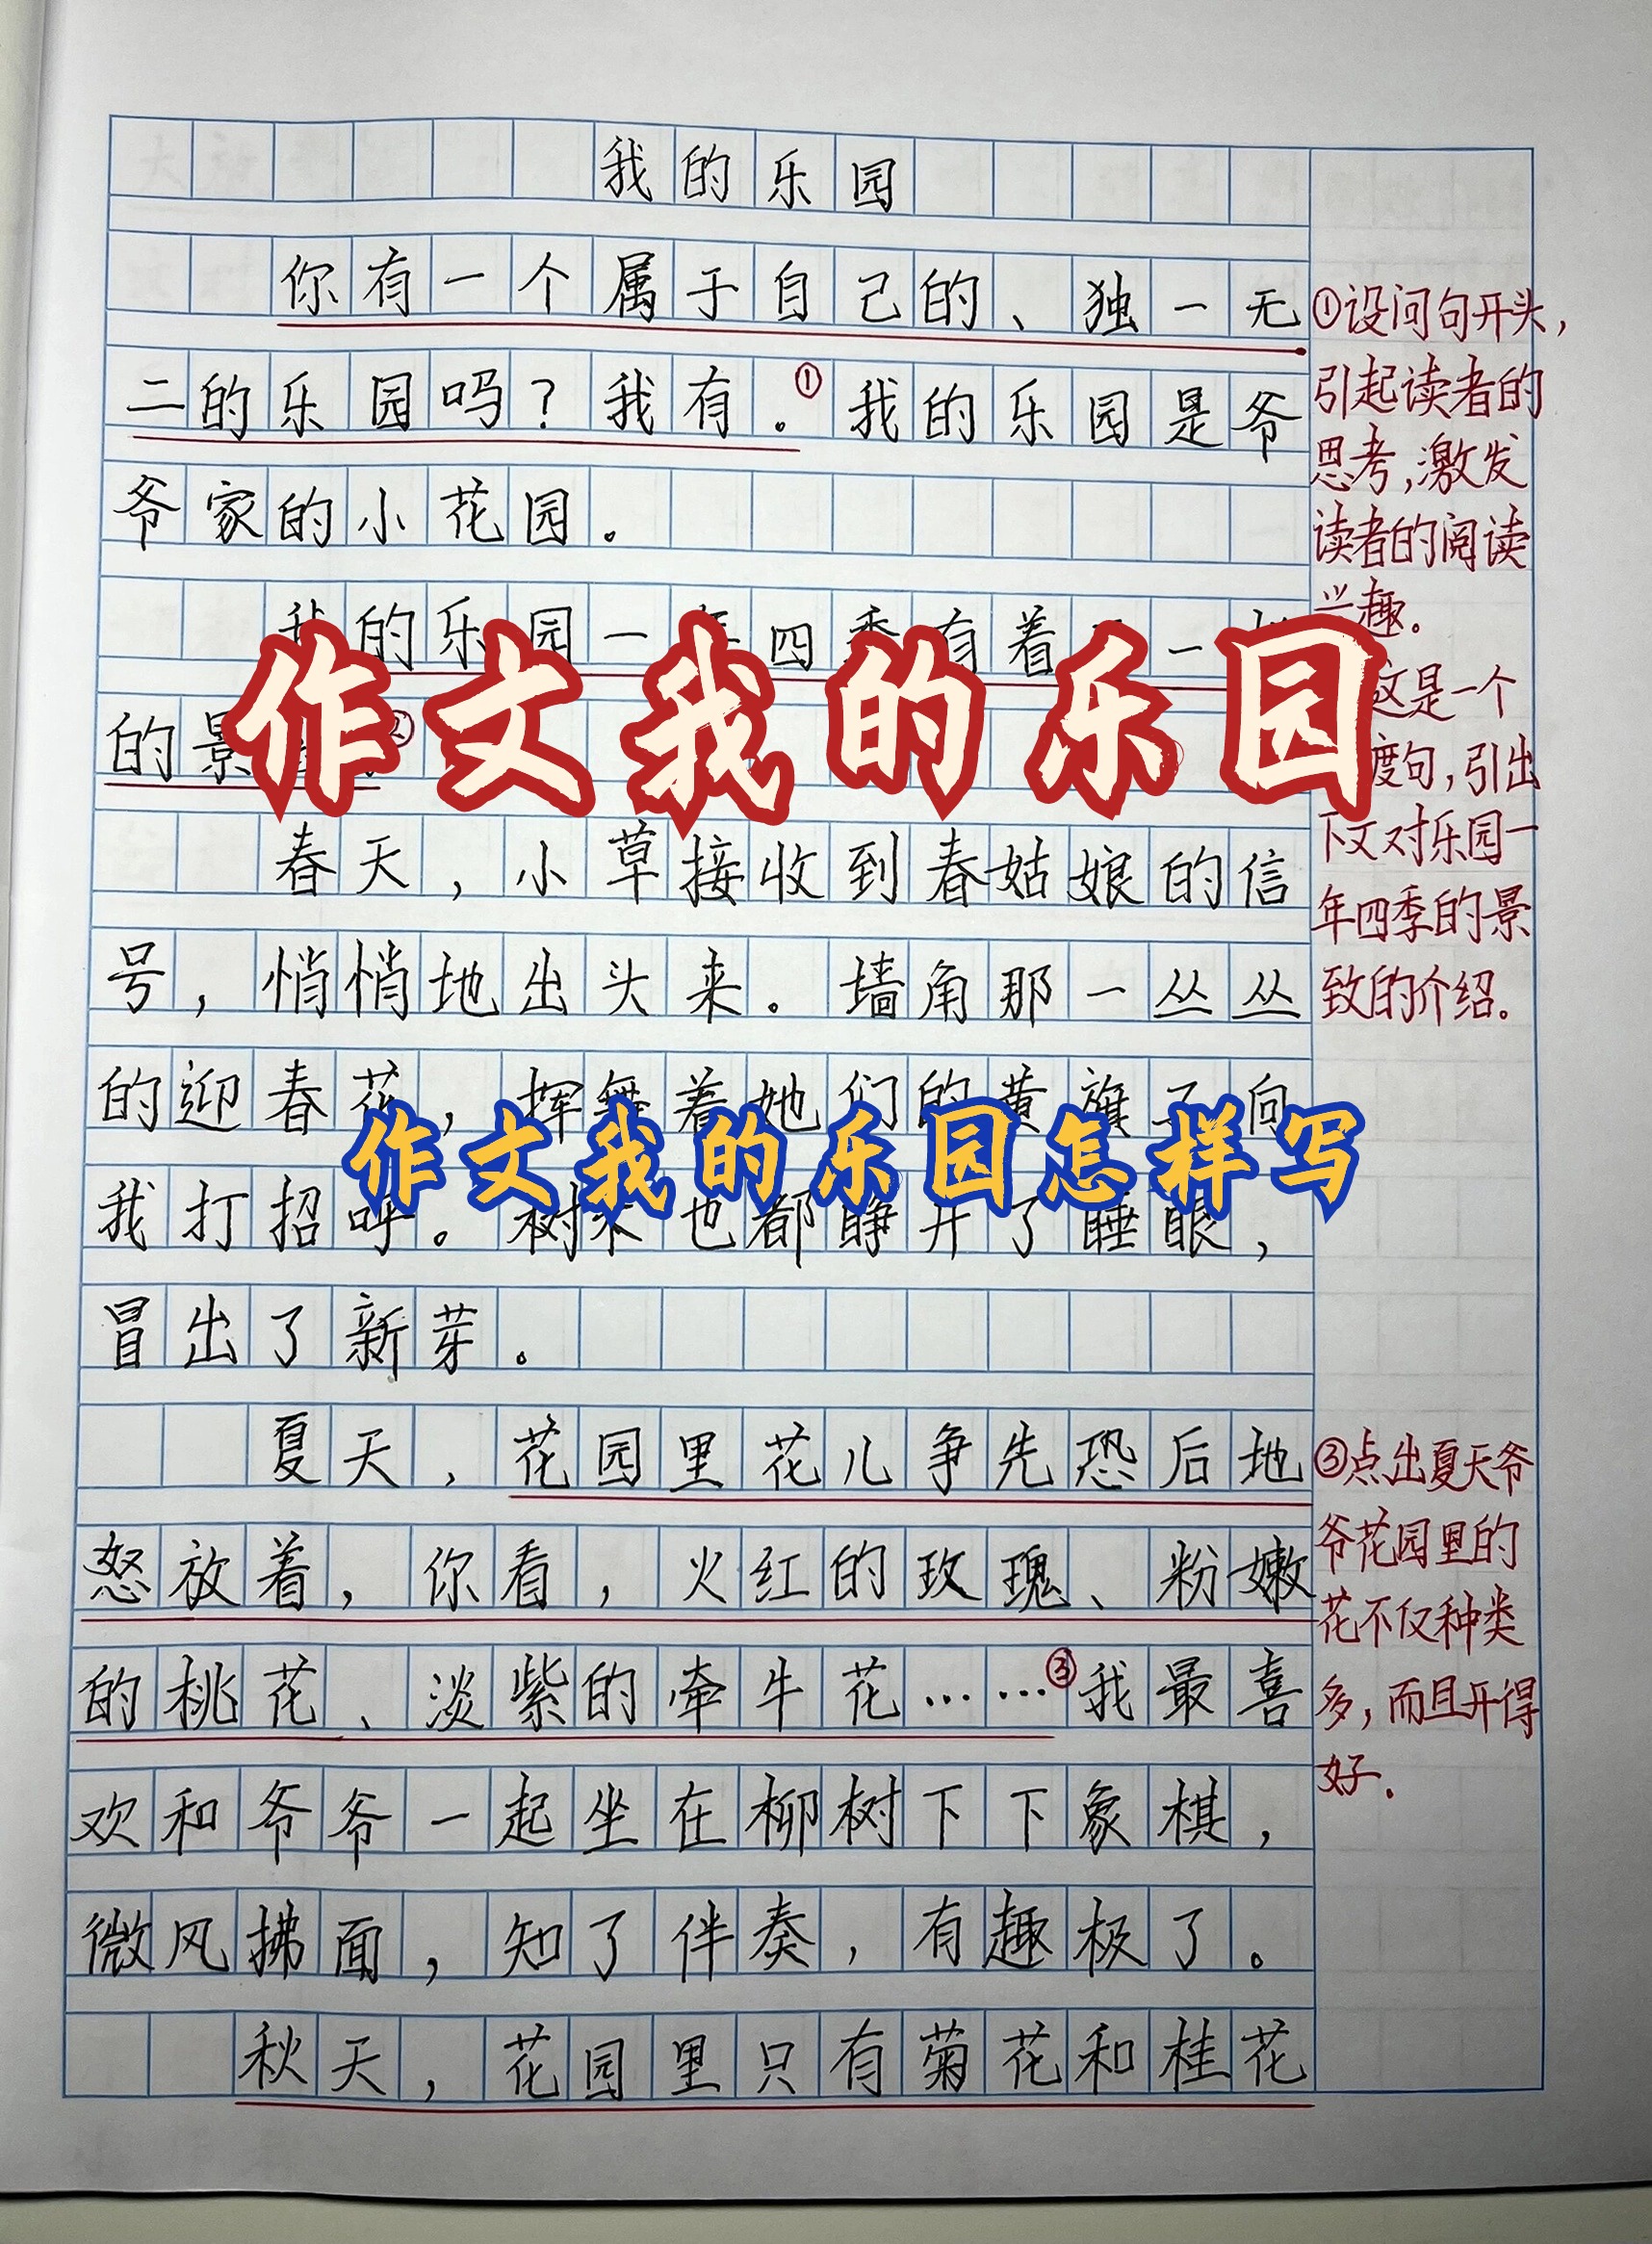 我的乐园
你有一个属于自己的、独一无
二的乐园吗？我有。①我的乐园是爷
爷家的小花园。
我的乐园一年四季有着
的景
作文我的乐园
春天，小草接收到春姑娘的信
号，悄悄地出头来。墙角那一丛丛
的迎春花，挥舞着她们的黄旗子向
作文我的乐园怎样写
我打招呼。树木也都睁开了睡眼，
冒出了新芽。
夏天，花园里花儿争先恐后地
怒放着，你看，火红的玫瑰、粉嫩
的桃花、淡紫的牵牛花……③我最喜
欢和爷爷一起坐在柳树下下象棋，
微风拂面，知了伴奏，有趣极了。
秋天，花园里只有菊花和桂花
①设问句开头，
引起读者的
思考，激发
读者的阅读
兴趣。
这是一个
度句，引出
下文对乐园一
年四季的景
致的介绍。
③点出夏天爷
爷花园里的
花不仅种类
多，而且开得
好。